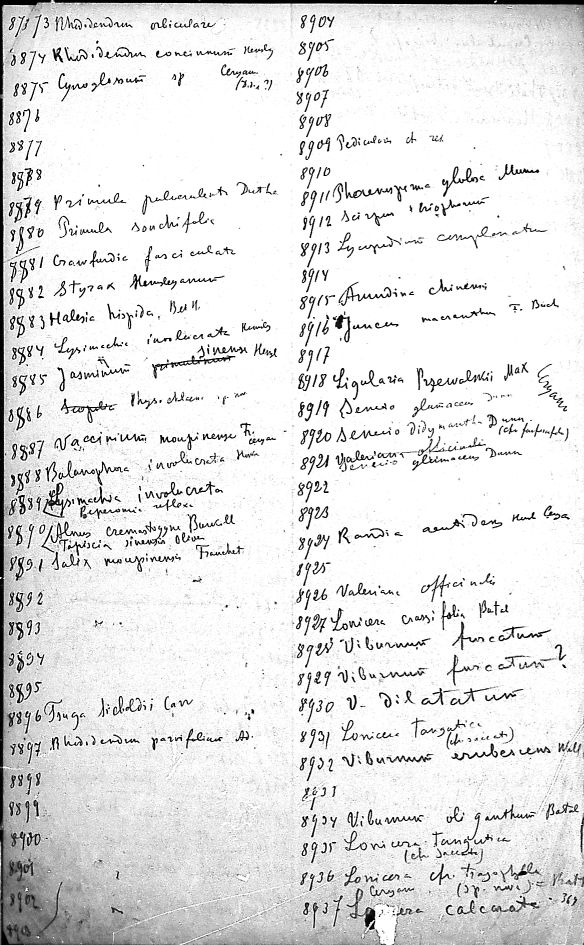 8873 Rhododendron orbiculare
8874 Rhododendron concinnum Hemsley
8875 Cynoglossum sp
8876
8877
8878
8879 Primula pulverulenta Duthie
8880 Primula sonchifolia
8881 Crawfurdia fasciculata
8882 Styrax Hemsleyanum
8883 Halesia hispida, Bet H.
8884 Lysimachia involucrata Hemsl
8885 Jasminum primulinum sinense Hemsl
8886 Scopolia Physochlaina sp
8887 Vaccinium moupinense Fr.
8888 Balanophora involucrata Hook
8889 Lysimachia involucrata
Peperomia reflexa
8890 Alnus cremastogyne Burkill
Tapiscia sinensis Oliver
8891 Salix moupinensis Franchet
8892
8893
8894
8895
8896 Tsuga Sieboldii Carr
8897 Rhododendron parvifolium Ad.
8898
8899
8900
8901
8902
8903
8904
8905
8906
8907
8908
8909 Pedicularis rex
8910
8911 Phorenosperma globosa
8912 Scirpus eriophorum
8913 Lycopodium complanatum
8914
8915 Arundina chinensis
8916 Juncus macranthus F. Buch
8917
8918 Ligularia Przewalskii Max
8919 Senecio Dunn
8920 Senecio didymantha Dunn.
8921 Valeriana officinalis
Senecio Dunn
8922
8923
8924 Randia
8925
8926 Valeriana officinalis
8927 Lonicera crassifolia Batal
8928 Viburnum furcatum
8929 Viburnum furcatum?
8930 V. dilatatum
8931 Lonicera tangutica
8932 Viburnum erubescens Wall
8933
8934 Viburnum oliganthum Batal
8935 Lonicera tangutica
8936 Lonicera
(sp. nova)
8937 Lonicera calcarata